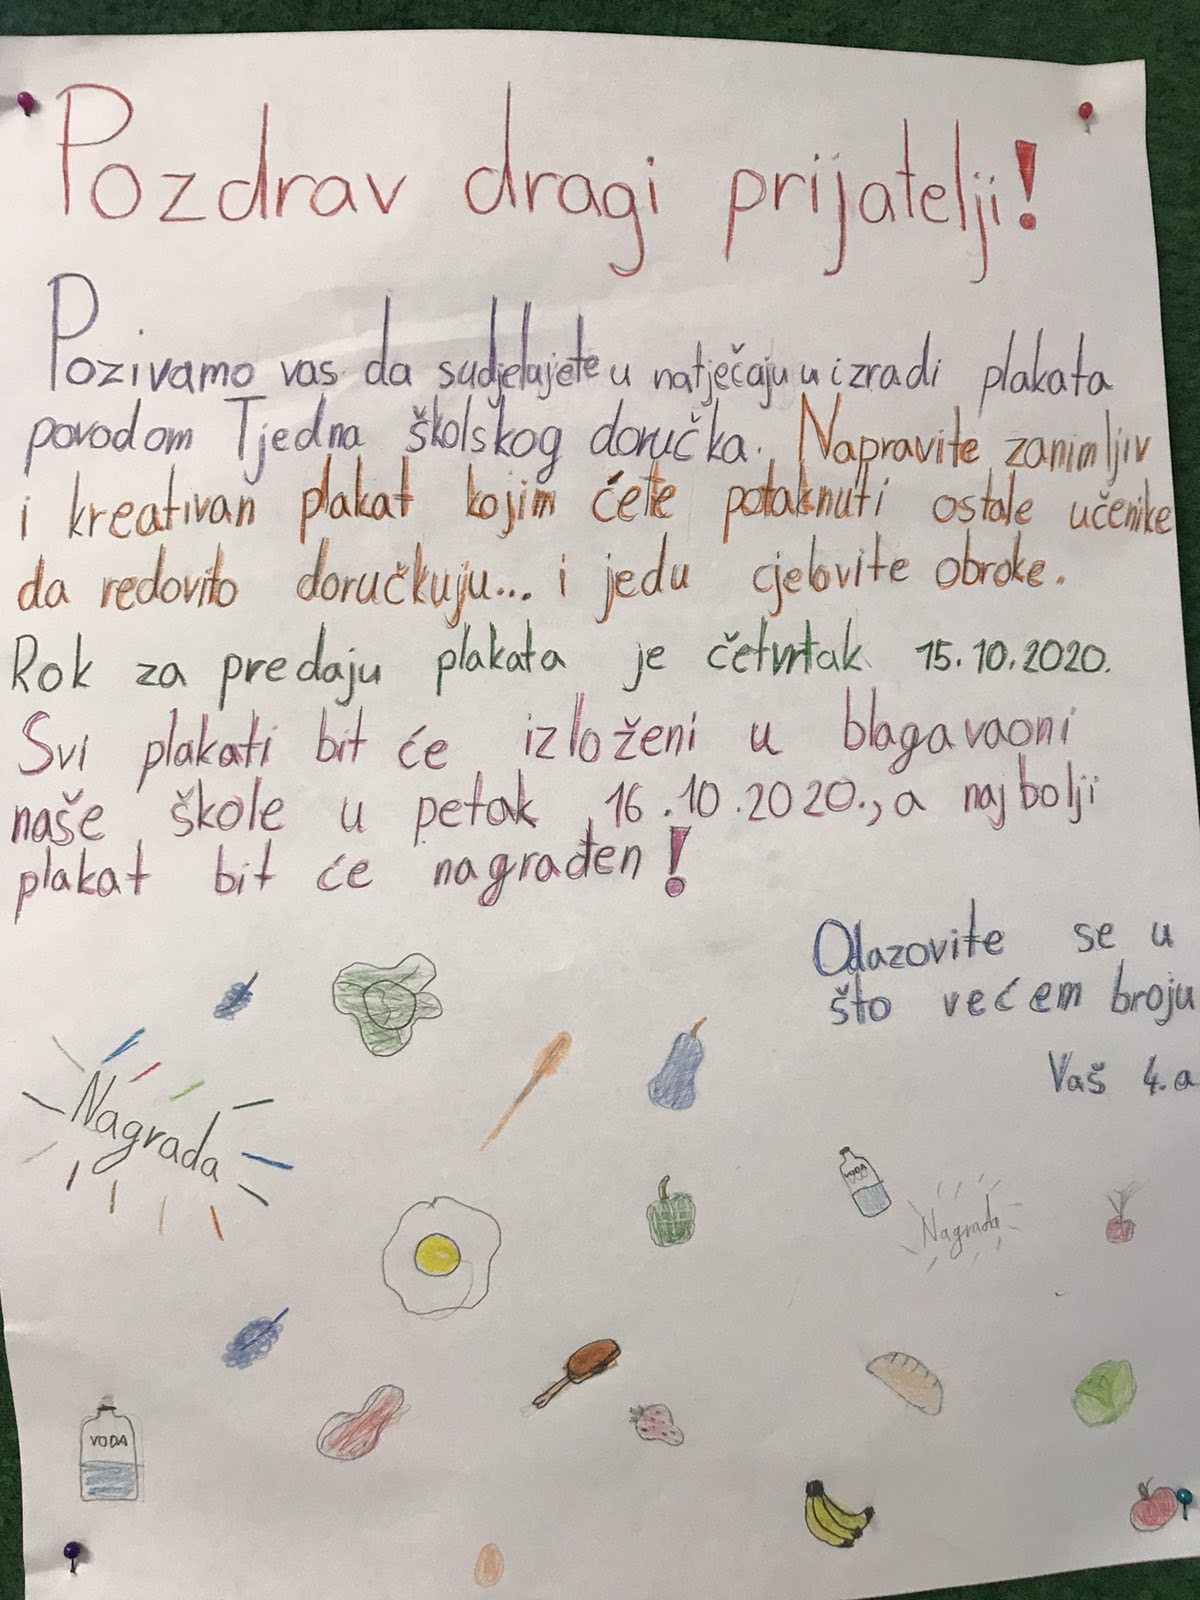 Pozdrav dragi prijatelji!
Pozivamo vas da sudjelujete u natječaju u izradi plakata
povodom Tjedna školskog doručka. Napravite zanimljiv
i kreativan plakat kojim ćete potaknuti ostale učenike
da redovito doručkuju... i jedu cjelovite obroke.
Rok za predaju plakata je četvrtak 15.10.2020.
Svi plakati bit će izloženi u blagavaoni
naše škole u petak 16.10.2020., a najbolji
plakat bit će nagrađen!
Odazovite se u
što većem broju
Vaš 4.a
Nagrada
VODA
Nagrada
VODA